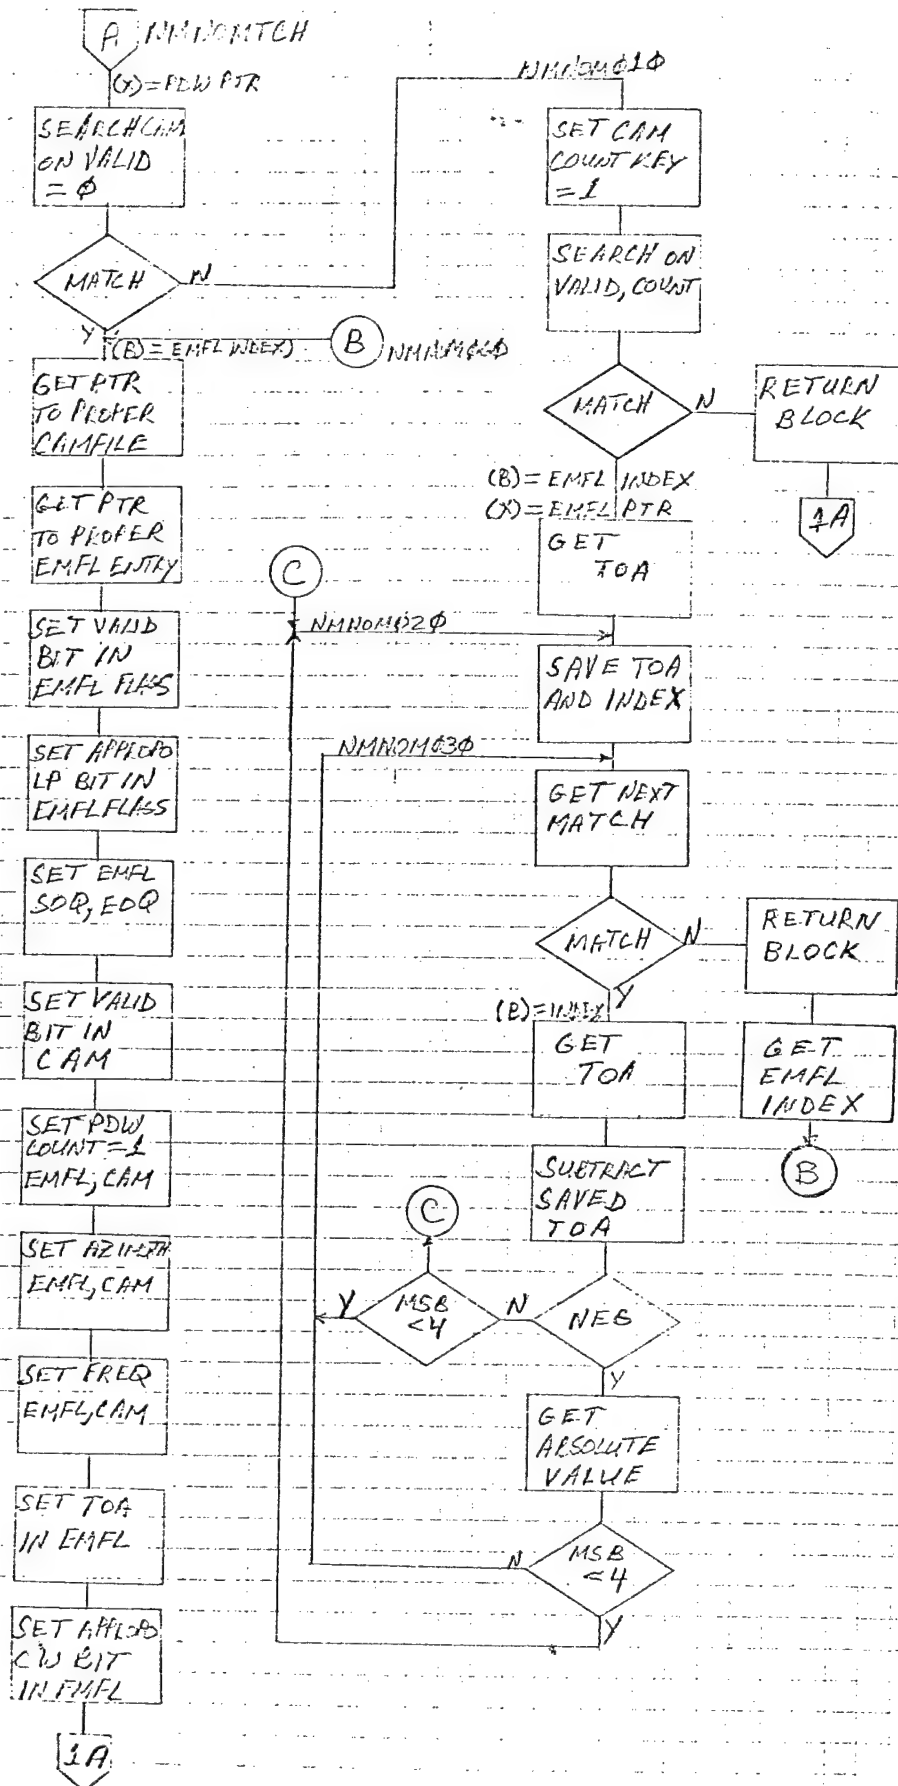 A NMNOMTCH
(X)=PDW PTR
SEARCH CAM
ON VALID
= Ø
MATCH
N
Y
(B)=EMFL INDEX)
B
GET PTR
TO PROPER
CAMFILE
GET PTR
TO PROPER
EMFL ENTRY
SET VALID
BIT IN
EMFL FLAGS
SET APPROPO
LP BIT IN
EMFL FLAGS
SET EMFL
SOQ, EOQ
SET VALID
BIT IN
CAM
SET PDW
COUNT=1
EMFL, CAM
SET AZIMUTH
EMFL, CAM
SET FREQ
EMFL, CAM
SET TOA
IN EMFL
SET APPROPO
CW BIT
IN EMFL
1A
NMNOMØ1Ø
SET CAM
COUNT KEY
= 1
SEARCH ON
VALID, COUNT
MATCH
N
RETURN
BLOCK
1A
(B)=EMFL INDEX
(X)=EMFL PTR
GET
TOA
C
NMNOMØ2Ø
SAVE TOA
AND INDEX
NMNOMØ3Ø
GET NEXT
MATCH
MATCH
N
Y
RETURN
BLOCK
GET
EMFL
INDEX
B
(B)=INDEX
GET
TOA
SUBTRACT
SAVED
TOA
C
Y
MSB
<4
N
NEG
Y
GET
ABSOLUTE
VALUE
N
MSB
<4
Y